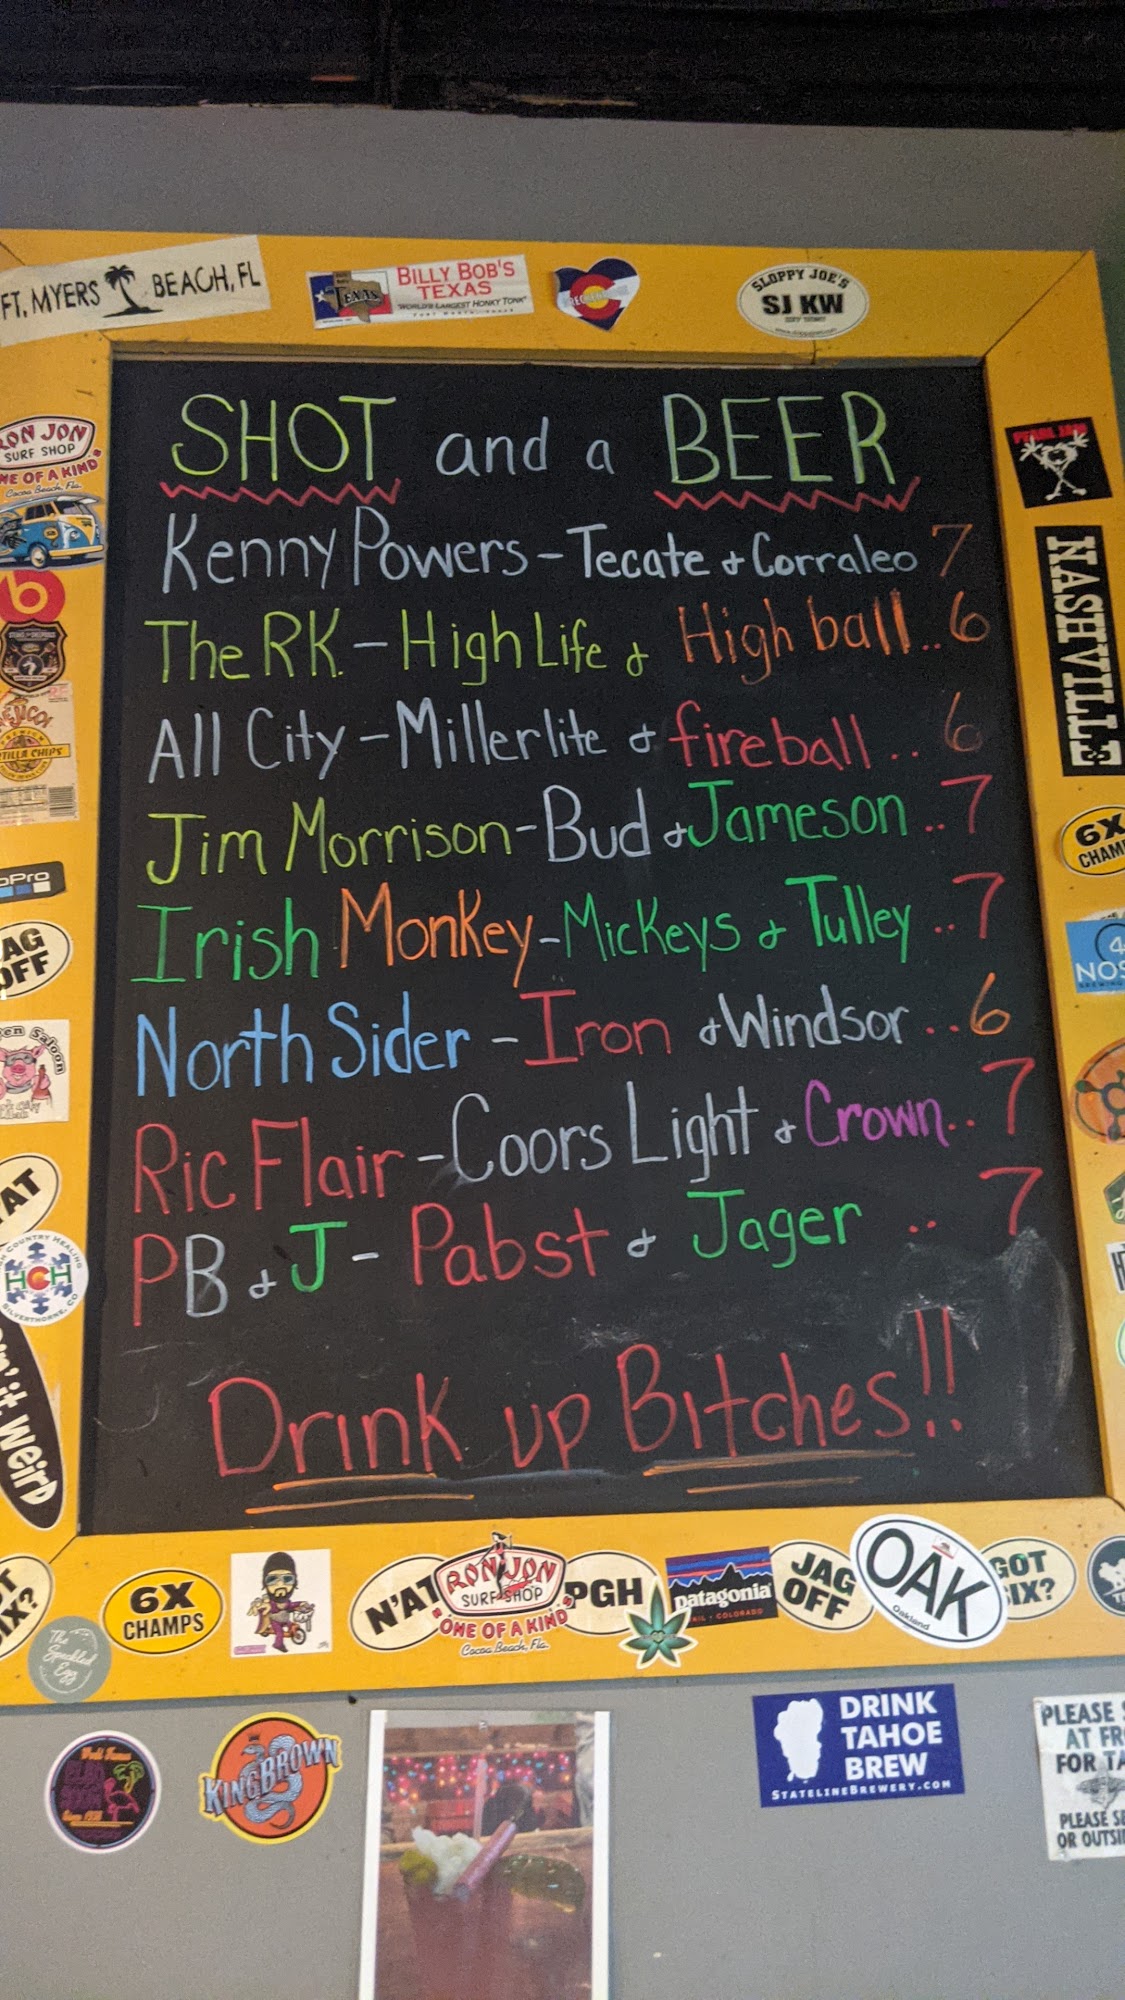 FT. MYERS BEACH, FL
TEXAS
BILLY BOB'S
TEXAS
WORLD'S LARGEST HONKY TONK
SLOPPY JOE'S
SJ KW
RON JON
SURF SHOP
ONE OF A KIND
Cocoa Beach, Fla.
SHOT and a BEER
Kenny Powers - Tecate & Corraleo 7
The RK. - High Life & High ball.. 6
All City - Millerlite & fireball .. 6
Jim Morrison - Bud & Jameson .. 7
Irish Monkey - Mickeys & Tulley .. 7
North Sider - Iron & Windsor .. 6
Ric Flair - Coors Light & Crown.. 7
PB & J - Pabst & Jager .. 7
Drink up Bitches!!
PEARL JAM
NASHVILLE
6X
CHAM
4
NOS
TILLA CHIPS
oPro
AG
OFF
Saloon
AT
COUNTRY HEALING
HCH
SILVERTHORNE, CO
it weird
6X
CHAMPS
N'AT
RON JON
SURF SHOP
"ONE OF A KIND"
Cocoa Beach, Fla.
PGH
patagonia
JAG
OFF
OAK
Oakland
GOT
SIX?
The
Speckled
Egg
KING BROWN
DRINK
TAHOE
BREW
STATELINEBREWERY.COM
PLEASE S
AT FR
FOR TA
PLEASE SE
OR OUTSI